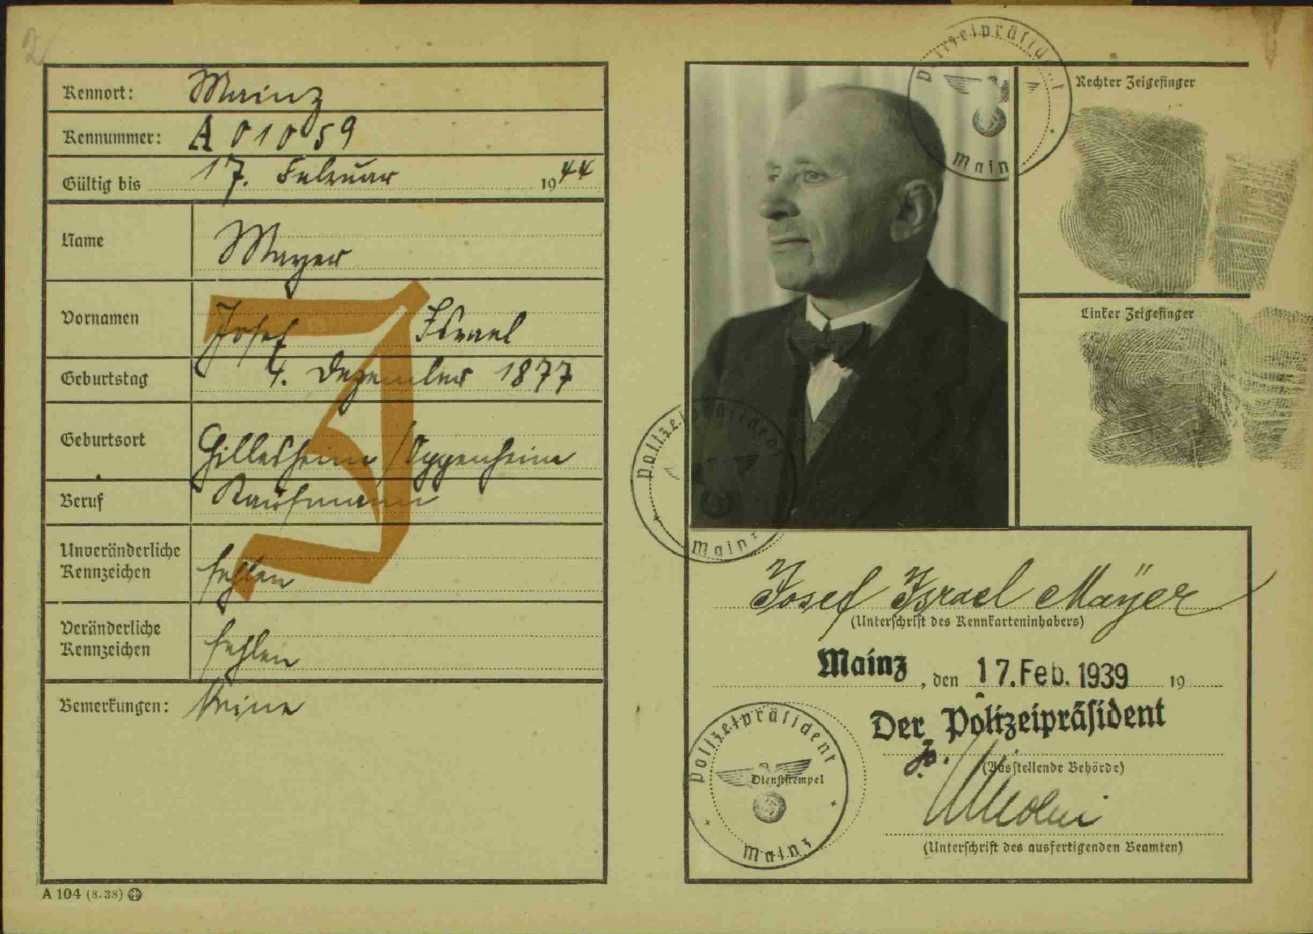 2
Kennort: Mainz
Kennummer: A 01059
Gültig bis 17. Februar 1944
Name Mayer
Vornamen Josef Israel
Geburtstag 4. Dezember 1877
Geburtsort Hillesheim / Oppenheim
Beruf Kaufmann
Unveränderliche
Kennzeichen fehlen
Veränderliche
Kennzeichen fehlen
Bemerkungen: Keine
J
A 104 (8.38)
Polizeipräsident
Mainz
Rechter Zeigefinger
Linker Zeigefinger
Polizeipräsident
Mainz
Josef Israel Mayer
(Unterschrift des Kennkarteninhabers)
Mainz, den 17. Feb. 1939 19
Der Polizeipräsident
(Ausstellende Behörde)
Polizeipräsident
Dienststempel
Mainz
(Unterschrift des ausfertigenden Beamten)